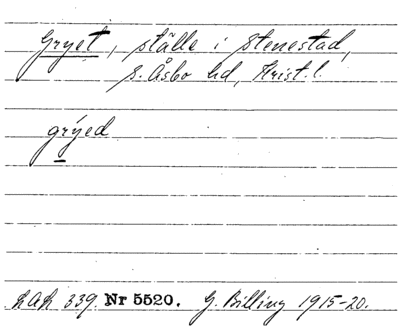 Gryet, ställe i Stenestad,
S. Åsbo hd, Krist. l.
grýed
LAL 339. Nr 5520. G. Billing 1915-20.